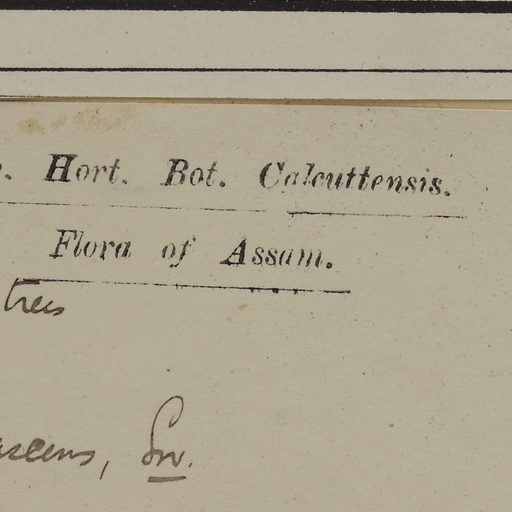 Hort. Bot. Calcuttensis.
Flora of Assam.
trees
Sw.